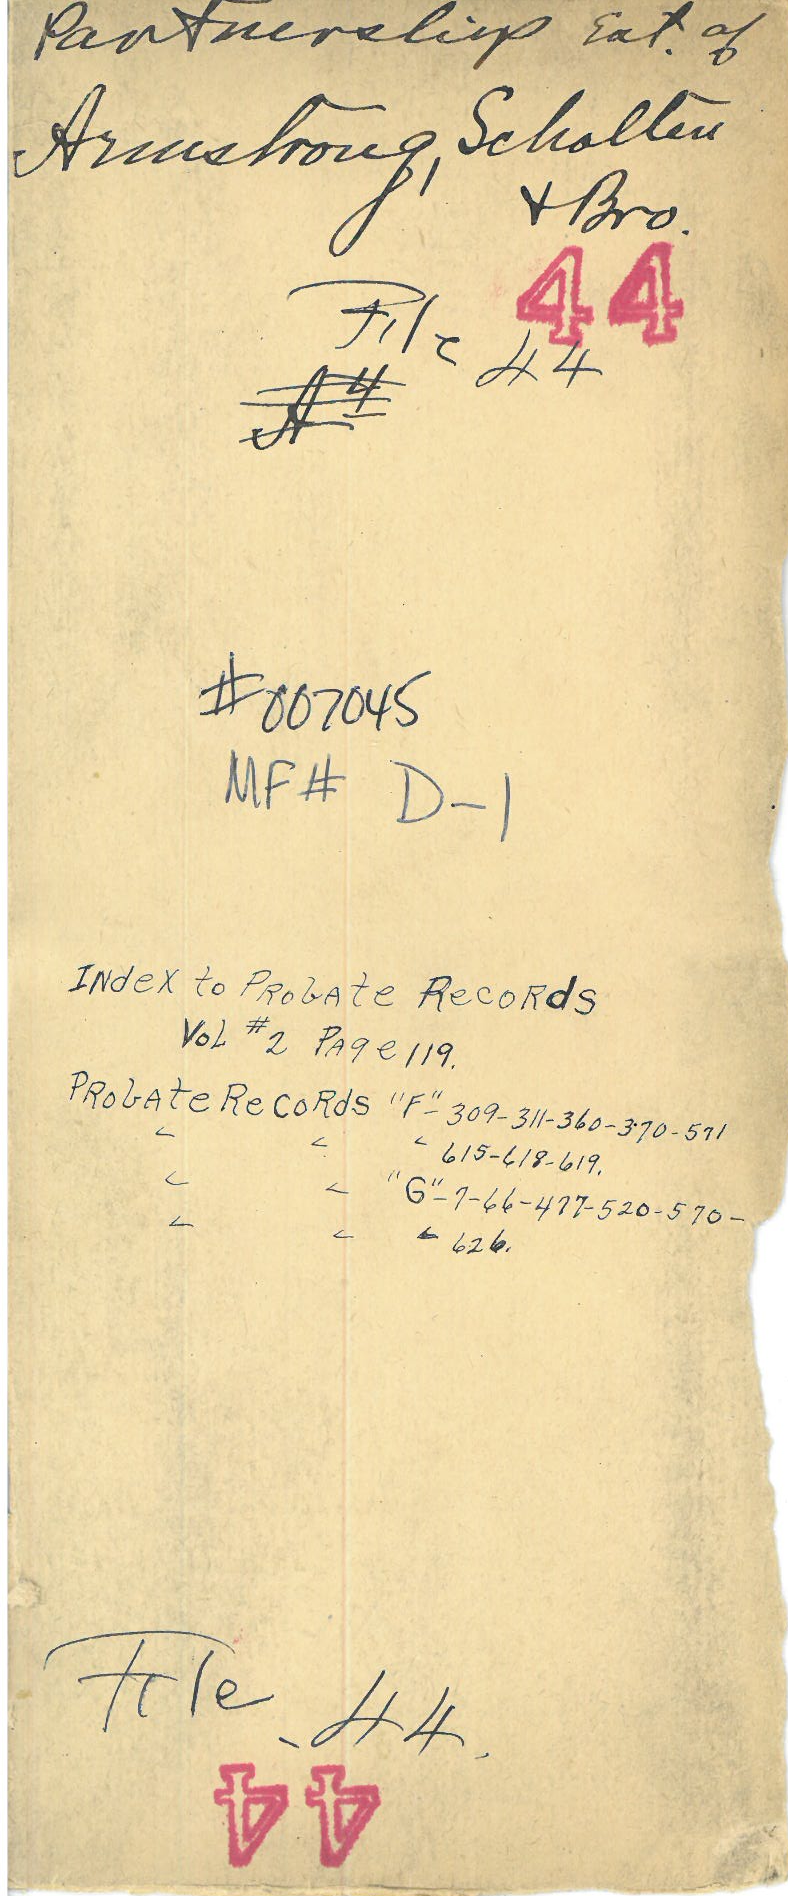 Partnership Est. of
Armstrong, Scholten
& Bro.
44
File 44
A 4
#007045
MF# D-1
Index to Probate Records
Vol #2 Page 119.
Probate Records "F"-309-311-360-370-571
" " " 615-618-619.
" " "G"-7-66-477-520-570-
" " " 626.
File 44.
44